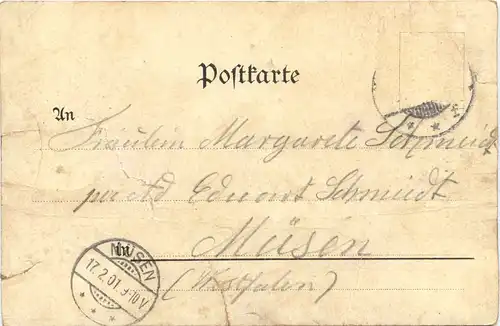 Postkarte
An
Fräulein Margarete Schmidt
Eduart Schmidt
Müsen
in
(Westfalen)
MÜSEN
17.2.01. 9-10V